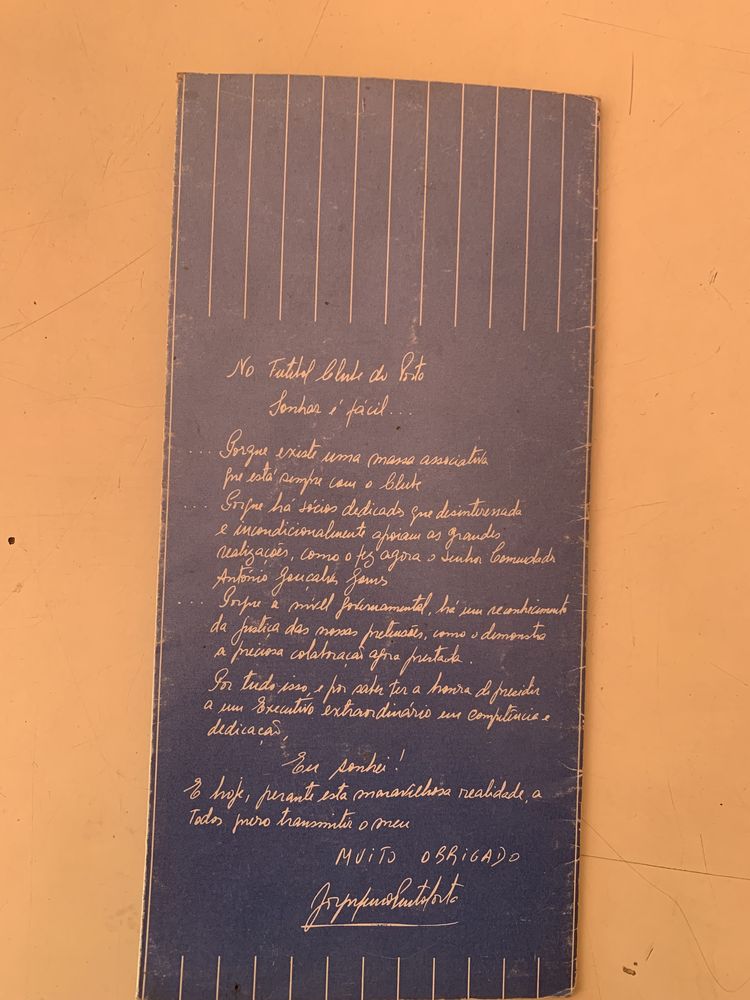 No Futebol Clube do Porto
Sonhar é fácil...
.... Porque existe uma massa associativa
que está sempre com o Clube
.... Porque há sócios dedicados que desinteressada
e incondicionalmente apoiam as grandes
realizações, como o fez agora o senhor Comendador
António Gonçalves Gomes
.... Porque a nível governamental, há um reconhecimento
da justiça das nossas pretensões, como o demonstra
a preciosa colaboração agora prestada.
Por tudo isso, e por saber ter a honra de presidir
a um Executivo extraordinário em competência e
dedicação,
Eu sonhei!
E hoje, perante esta maravilhosa realidade, a
Todos quero transmitir o meu
MUITO OBRIGADO